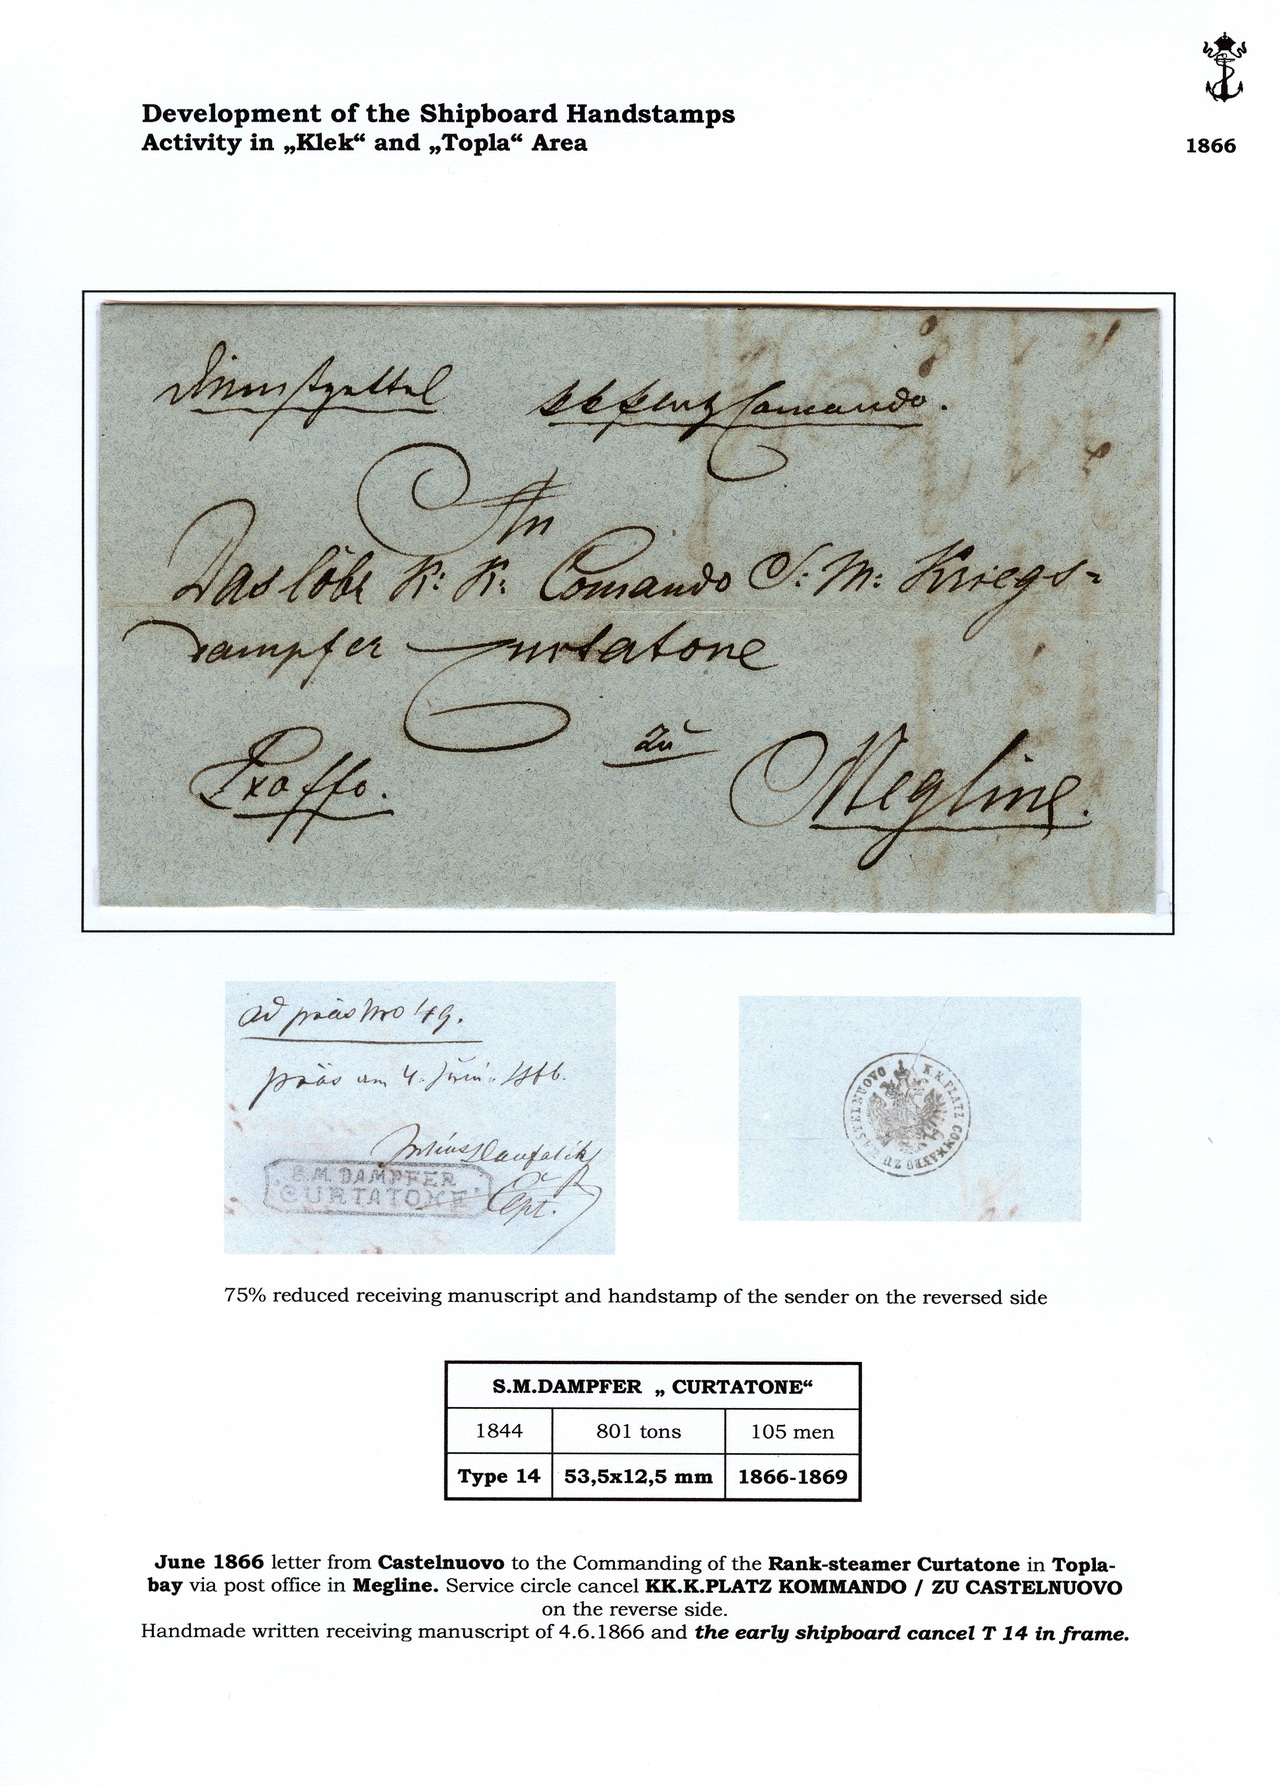 Development of the Shipboard Handstamps
Activity in „Klek“ and „Topla“ Area
1866
Comando.
An
Das löbl K: K: Comando S: M: Kriegs=
dampfer Curtatone
zu
Megline.
ad präs Nro 49.
präs am 4. Juni 1866.
S.M. DAMPFER
'CURTATONE'
Cpt.
K.K. PLATZ COMMANDO ZU CASTELNUOVO
75% reduced receiving manuscript and handstamp of the sender on the reversed side
S.M.DAMPFER „ CURTATONE“
1844 801 tons 105 men
Type 14 53,5x12,5 mm 1866-1869
June 1866 letter from Castelnuovo to the Commanding of the Rank-steamer Curtatone in Topla-
bay via post office in Megline. Service circle cancel KK.K.PLATZ KOMMANDO / ZU CASTELNUOVO
on the reverse side.
Handmade written receiving manuscript of 4.6.1866 and the early shipboard cancel T 14 in frame.